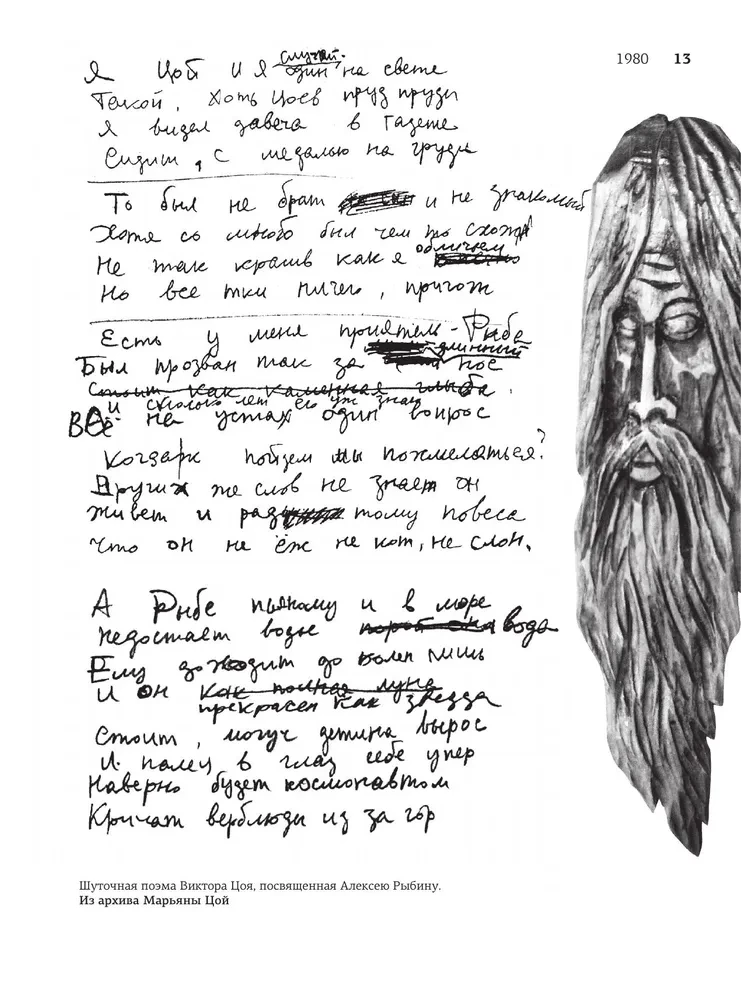 1980 13
Я Цой и я один случай на свете
Такой, хоть Цоев пруд пруди
Я видел давеча в газете
Сидит, с медалью на груди
То был не брат и не знакомый
Хотя со мною был чем то схож
Не так красив как я обличьем
Но все тки ничего, пригож
Есть у меня приятель - Рыбе
Был прозван так за длинный нос
Стоит как каменная глыба
и сколько лет его уж знаю
Всё на устах один вопрос
Когда рк пойдем мы похмеляться?
Других же слов не знает он
живет и рад тому повеса
Что он не ёж не кот, не слон.
А Рыбе пьяному и в море
недостает воды вода
Ему доходит до колен лишь
И он как полная луна
прекрасен как звезда
Стоит, могуч детина вырос
И палец в глаз себе упер
Наверно будет космонавтом
Кричат верблюды из за гор
Шуточная поэма Виктора Цоя, посвященная Алексею Рыбину.
Из архива Марьяны Цой